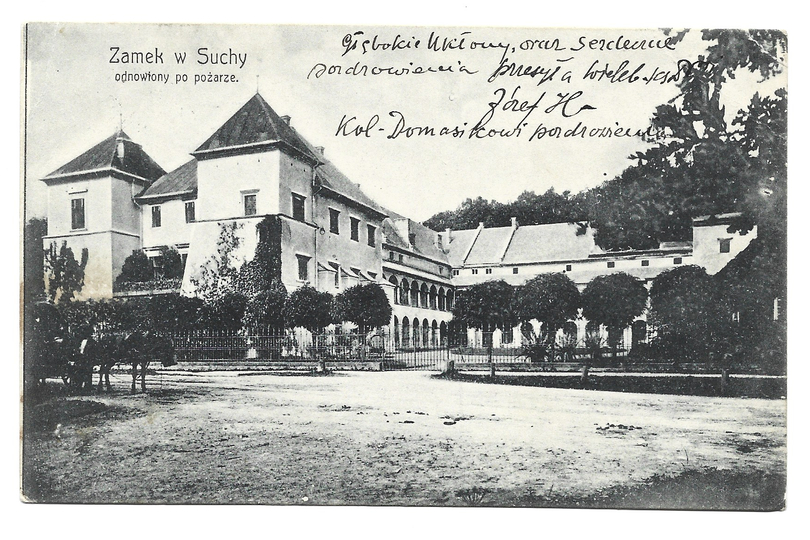 Zamek w Suchy
odnowiony po pożarze.
Głębokie Ukłony, oraz serdeczne
pozdrowienia przesyła
Józef H
Kol-Domasikowi pozdrowienia